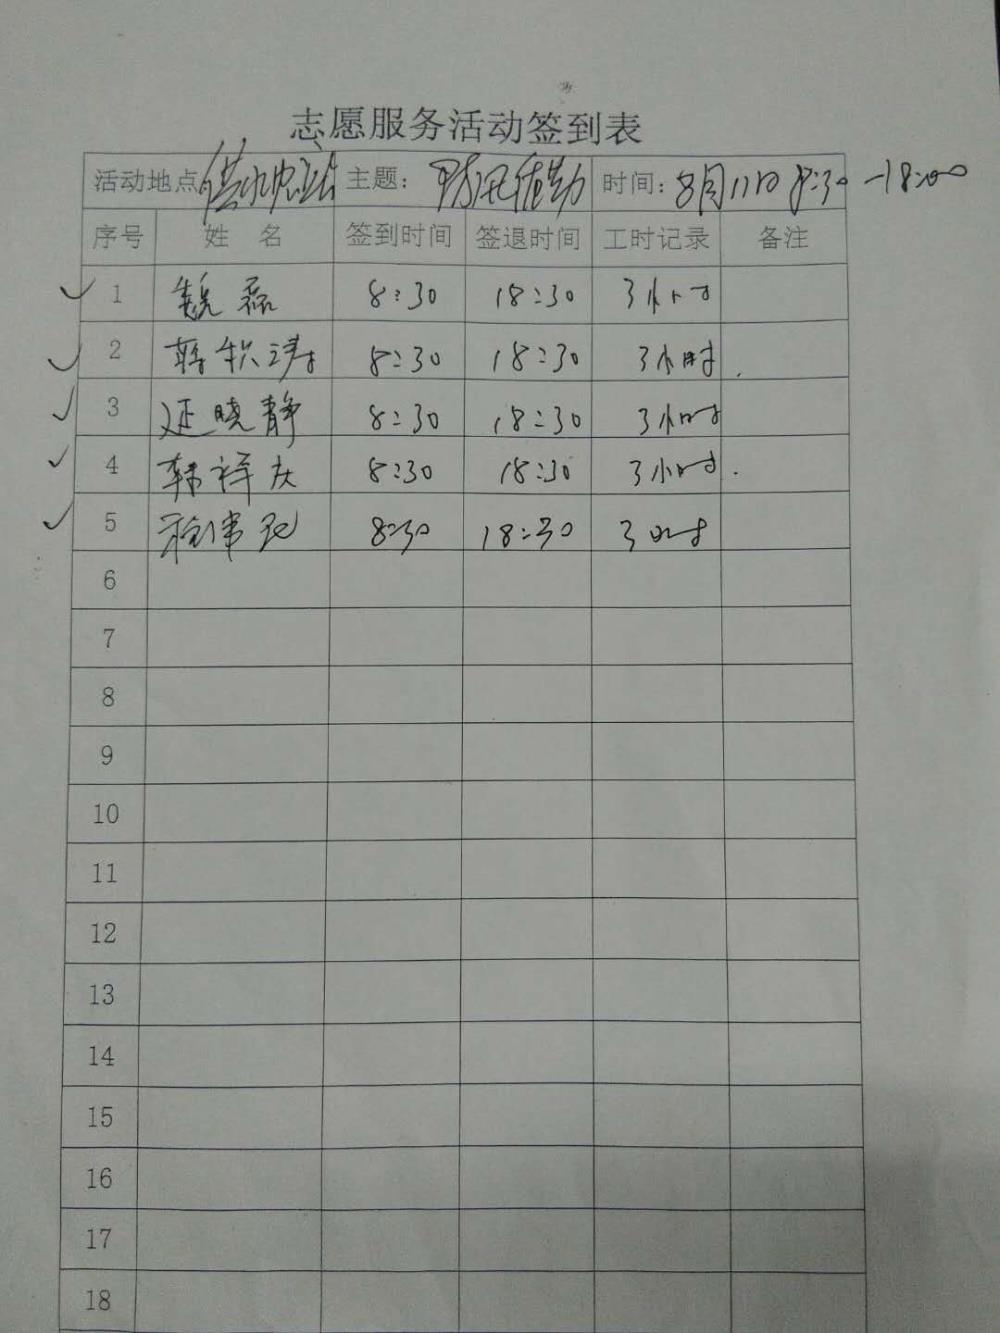 志愿服务活动签到表
活动地点 主题： 执勤 时间：8月11日 8:30-18:00
序号 姓名 签到时间 签退时间 工时记录 备注
1 魏磊 8:30 18:30 3小时
2 8:30 18:30 3小时
3 延晓静 8:30 18:30 3小时
4 韩祥友 8:30 18:30 3小时
5 8:30 18:30 3小时
6
7
8
9
10
11
12
13
14
15
16
17
18